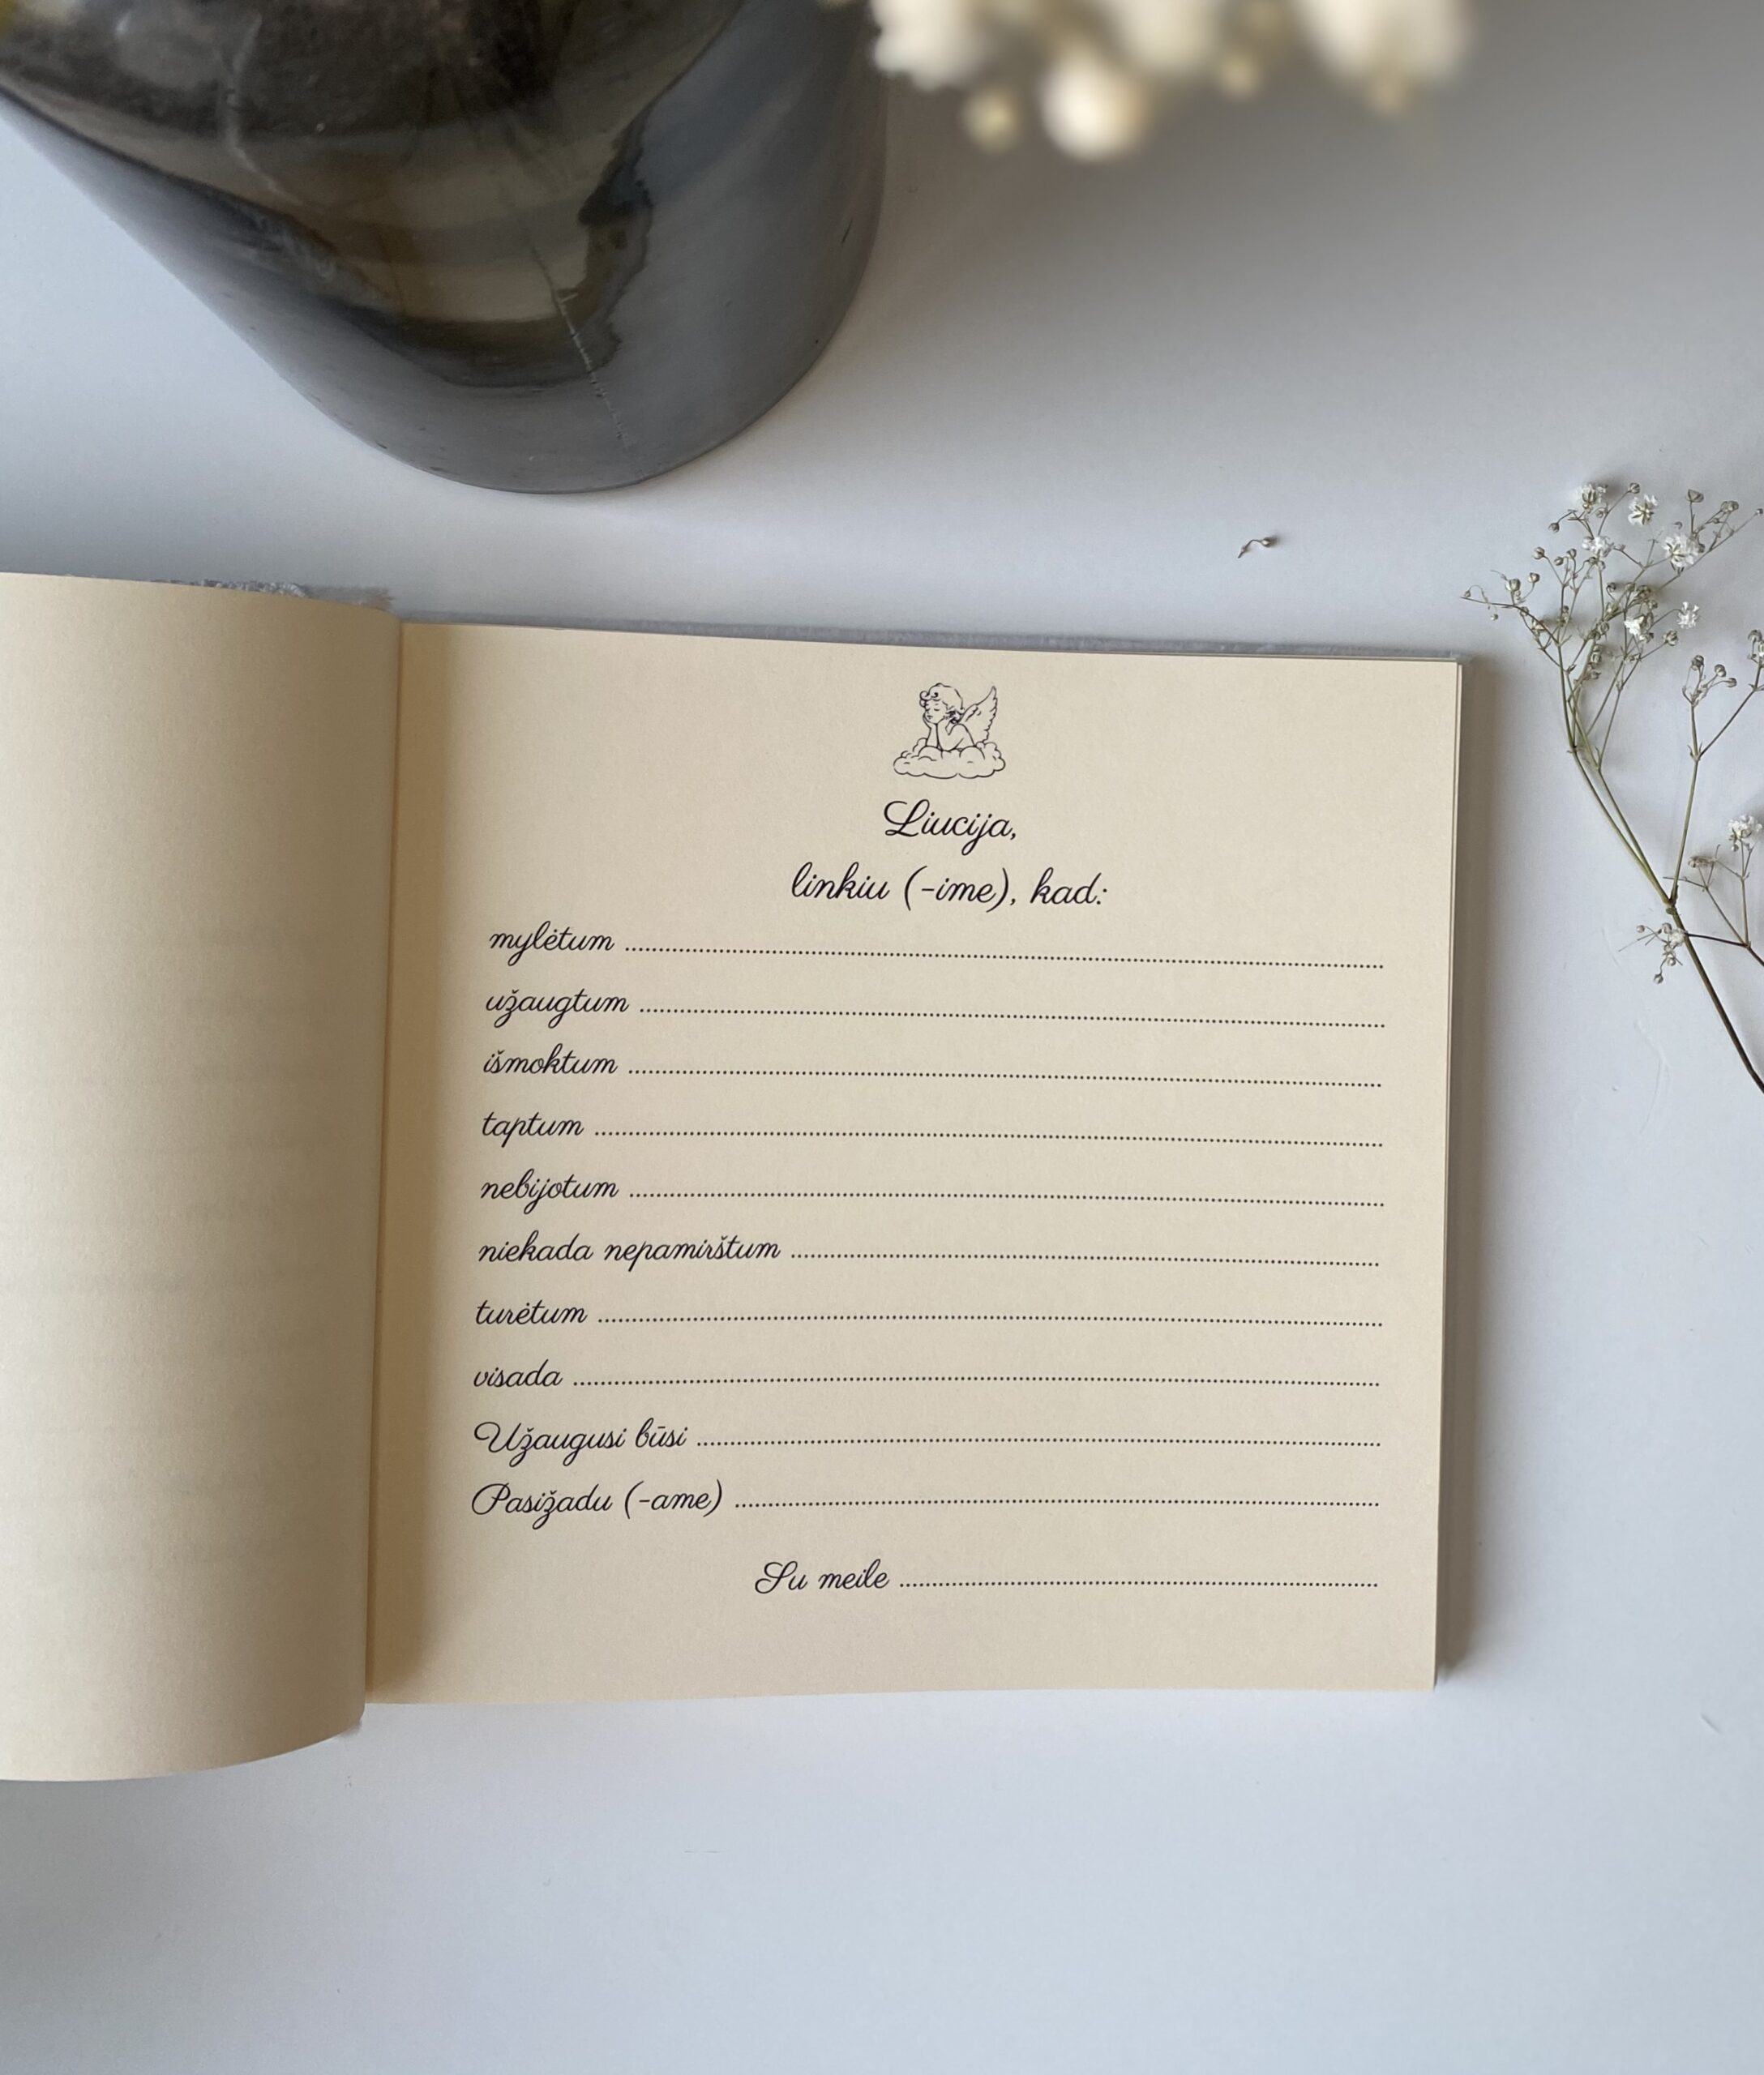 Liucija,
linkiu (-ime), kad:
mylėtum ........................................
užaugtum ........................................
išmoktum ........................................
taptum ........................................
nebijotum ........................................
niekada nepamirštum ........................................
turėtum ........................................
visada ........................................
Užaugusi būsi ........................................
Pasižadu (-ame) ........................................
Su meile ........................................